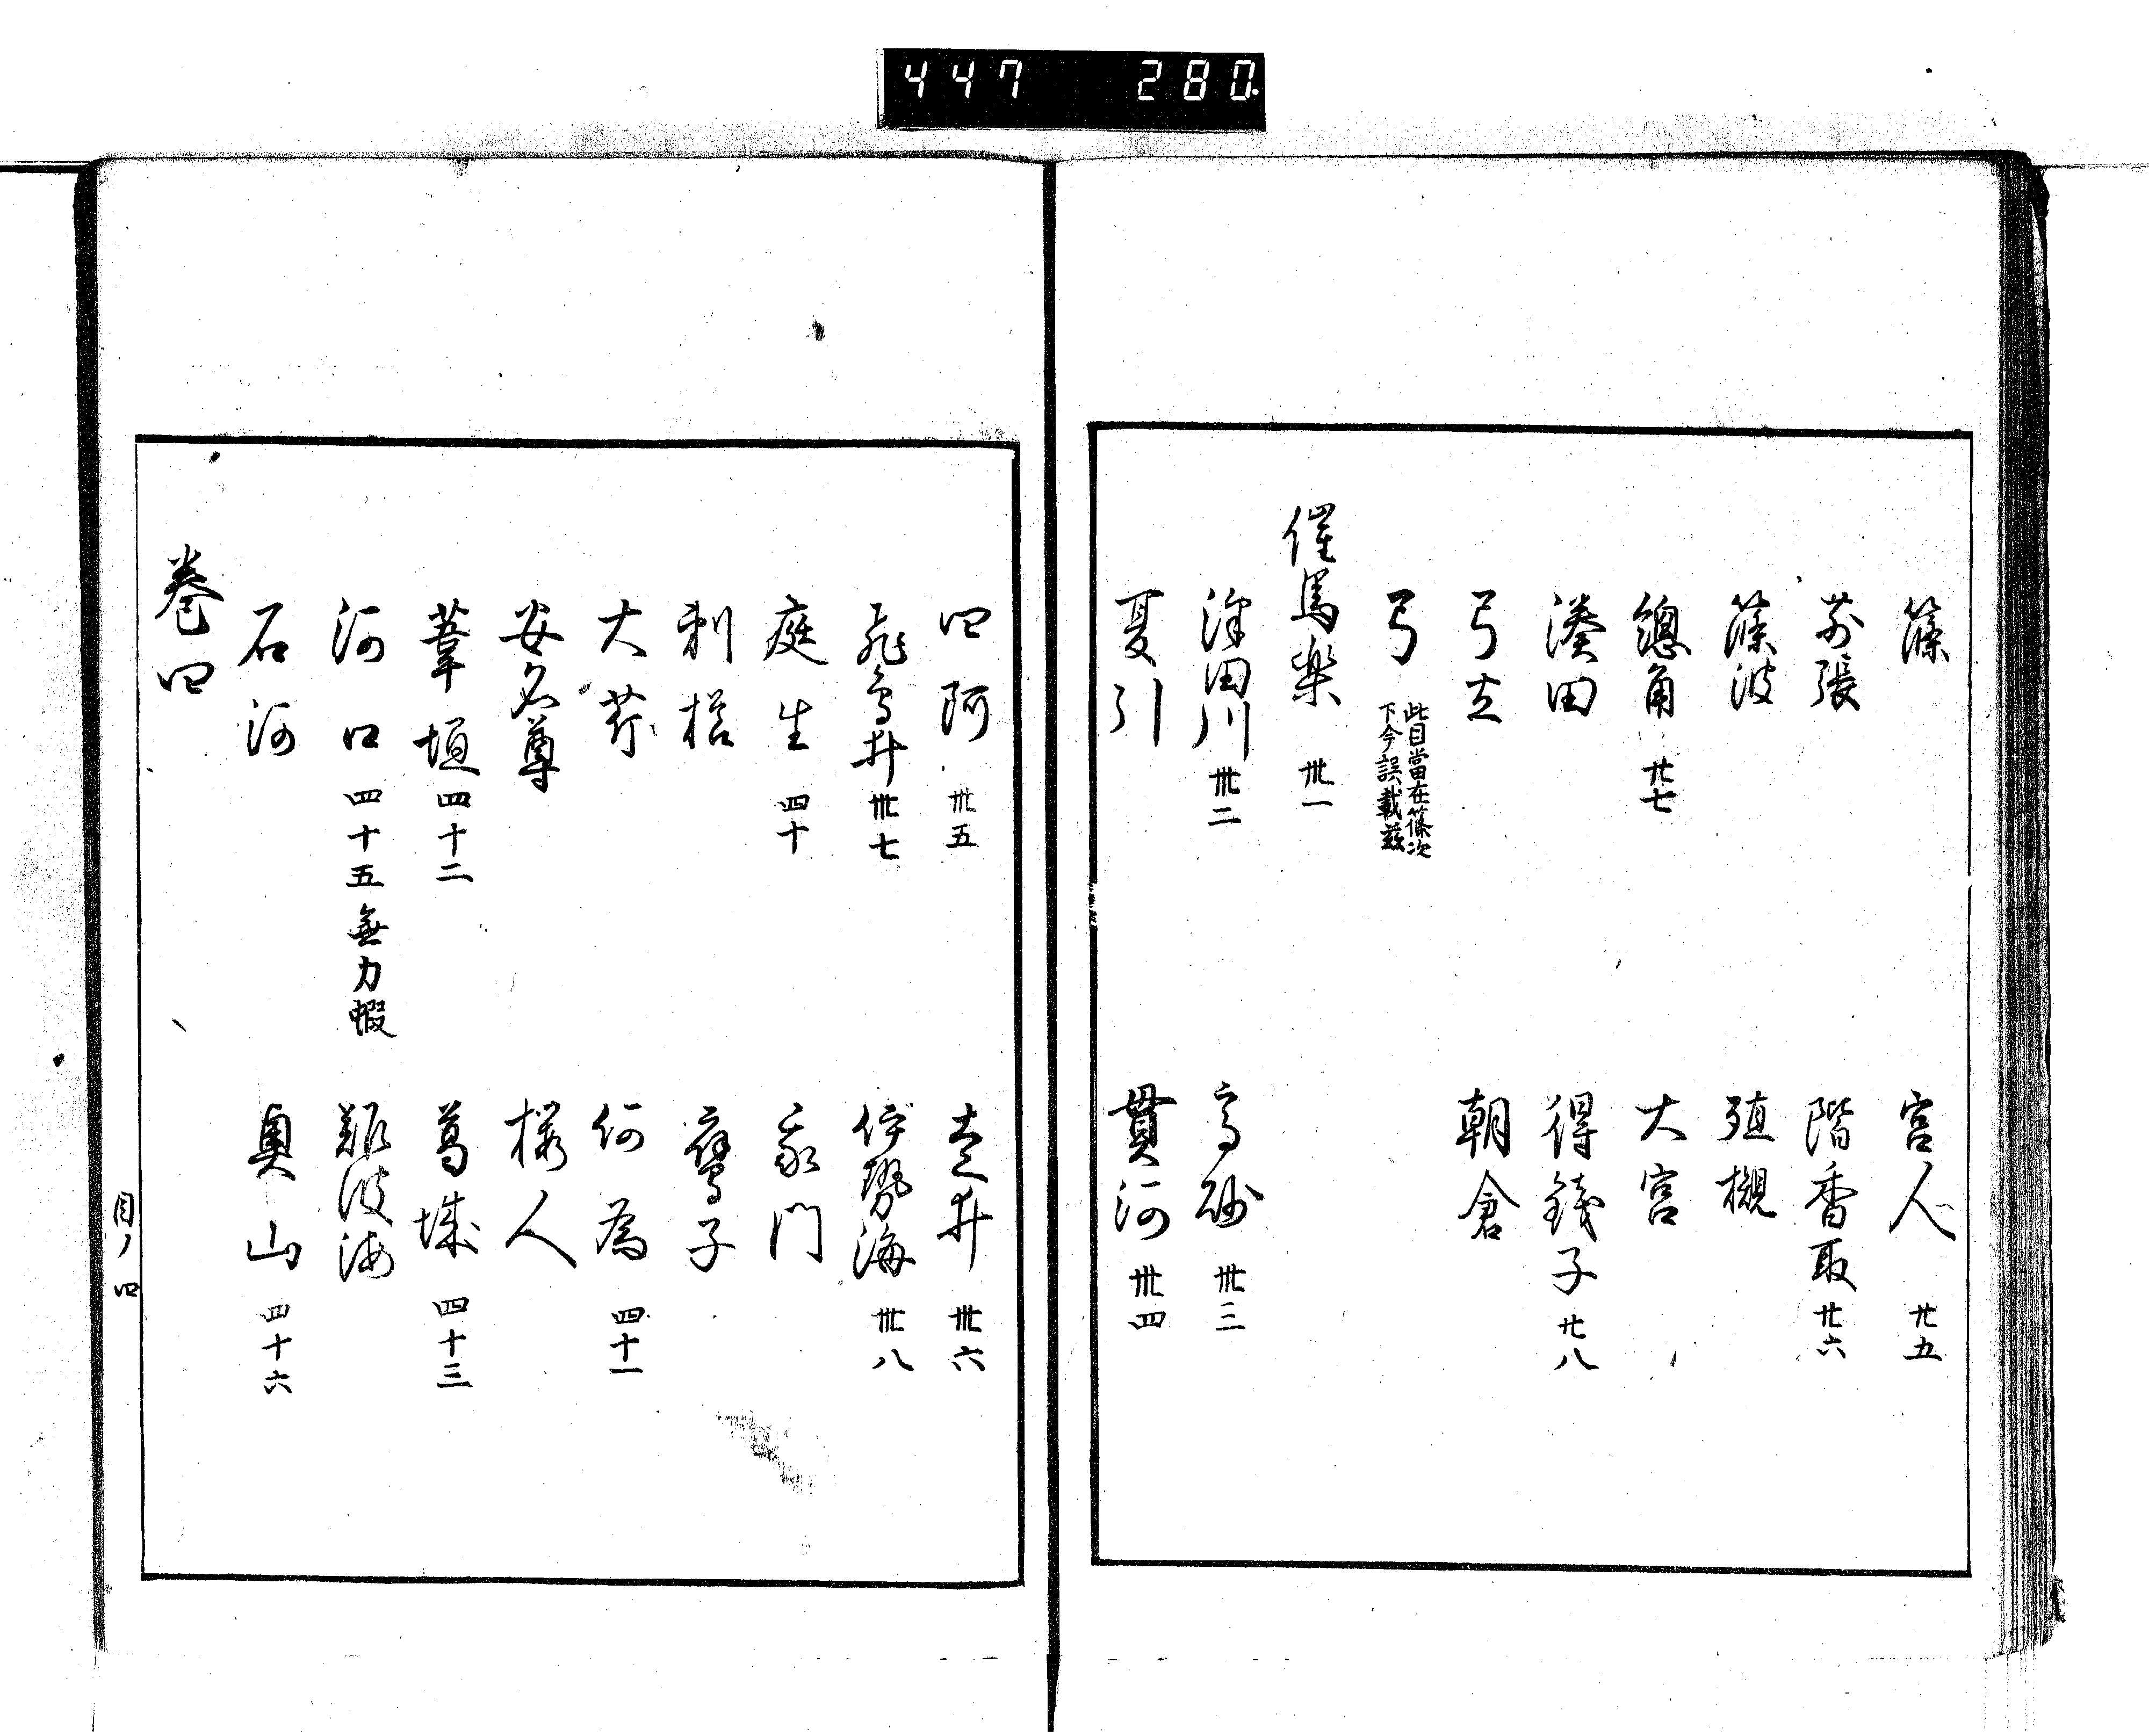 447 280
篠 宮人 廿五
前張 階香取 廿六
篠波 殖槻
總角 廿七 大宮
湊田 得錢子 廿八
弓立 朝倉
弓 此目當在篠次
下今誤載茲
催馬樂 卅一
澤田川 卅二 高砂 卅三
夏引 貫河 卅四
四阿 卅五 走井 卅六
飛鳥井 卅七 伊勢海 卅八
庭生 四十 我門
刺櫛 鷹子
大芹 何為 四十一
安名尊 櫻人
葦垣 四十二 葛城 四十三
河口 四十五 無力蝦 難波海
石河 奥山 四十六
巻四
目ノ四